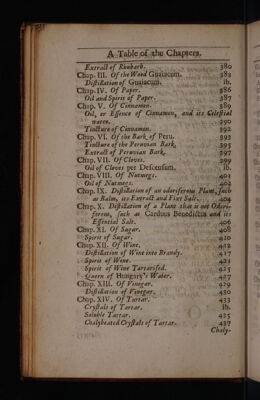 A Table of the Chapters.
Extract of Rhubarb. 380
Chap. III. Of the Wood Guaiacum. 383
Distillation of Guaiacum. ib.
Chap. IV. Of Paper. 386
Oil and Spirit of Paper. 387
Chap. V. Of Cinnamon. 389
Oil, or Essence of Cinnamon, and its Celestial
water. 390
Tincture of Cinnamon. 392
Chap. VI. Of the Bark of Peru. 393
Tincture of the Peruvian Bark. 395
Extract of Peruvian Bark. 397
Chap. VII. Of Cloves. 399
Oil of Cloves per Descensum. ib.
Chap. VIII. Of Nutmegs. 401
Oil of Nutmegs. 402
Chap. IX. Distillation of an odoriferous Plant, such
as Balm, its Extract and Fixt Salt. 404
Chap. X. Distillation of a Plant that is not Odori-
ferous, such as Carduus Benedictus and its
Essential Salt. 406
Chap. XI. Of Sugar. 408
Spirit of Sugar. 410
Chap. XII. Of Wine. 412
Distillation of Wine into Brandy. 417
Spirit of Wine. 421
Spirit of Wine Tartarised. 425
Queen of Hungary's Water. 427
Chap. XIII. Of Vinegar. 429
Distillation of Vinegar. 430
Chap. XIV. Of Tartar. 433
Crystals of Tartar. ib.
Soluble Tartar. 435
Chalybeated Crystals of Tartar. 437
Chaly-